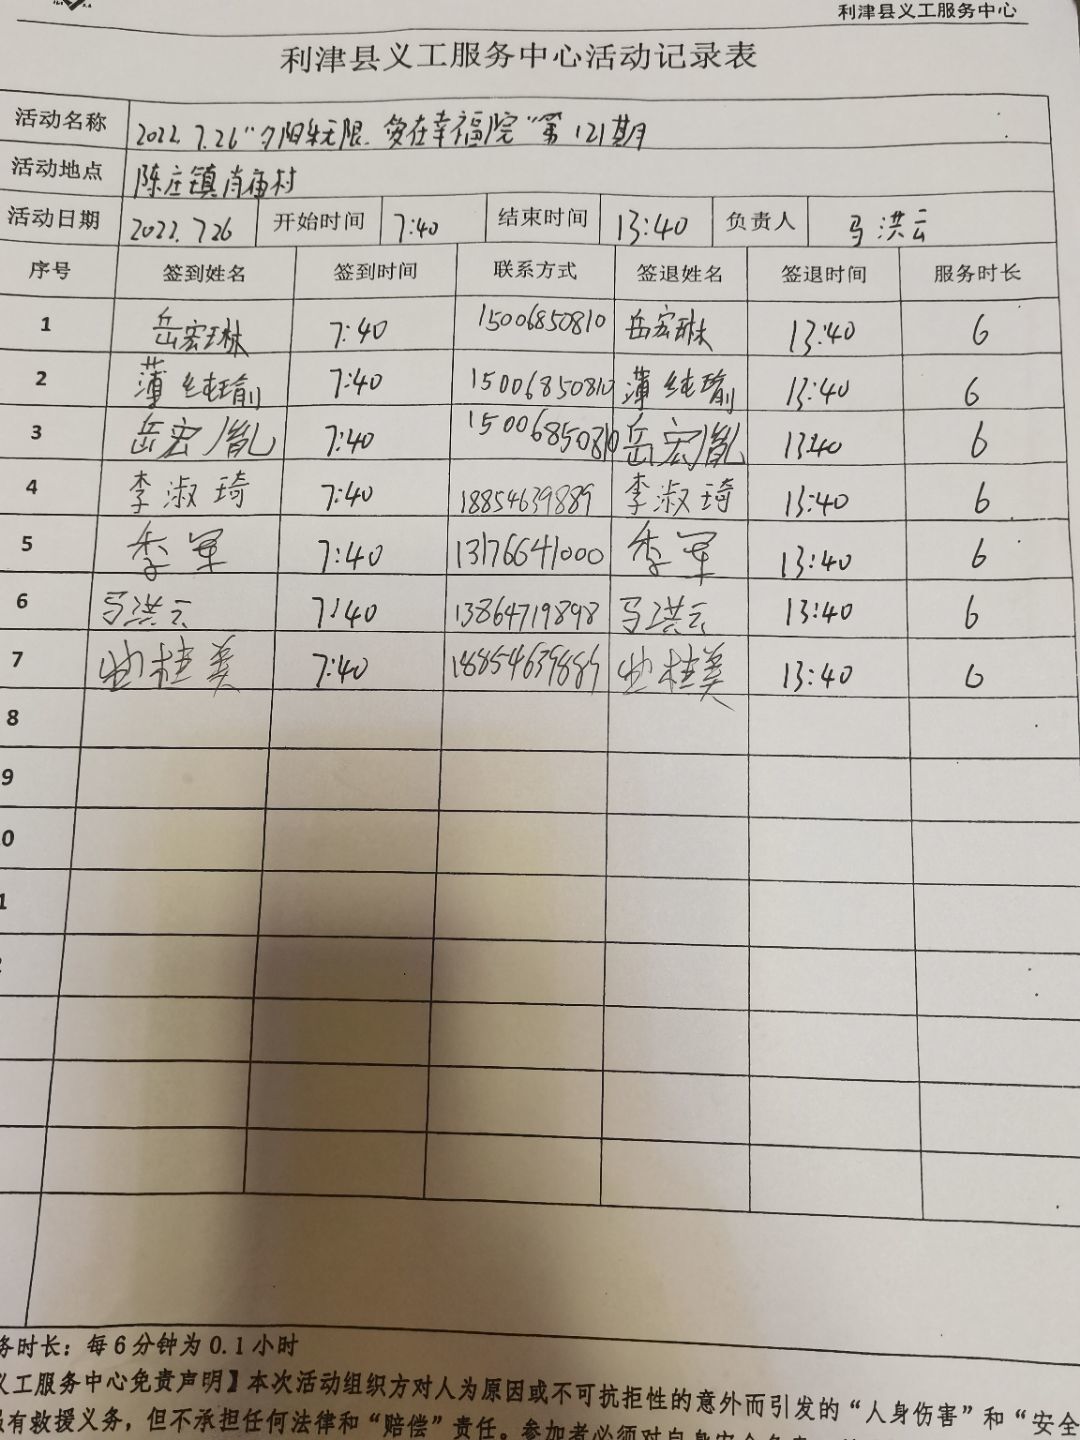 利津县义工服务中心
利津县义工服务中心活动记录表
活动名称 2022.7.26"夕阳无限.爱在幸福院"第121期
活动地点 陈庄镇肖庙村
活动日期 2022.7.26 开始时间 7:40 结束时间 13:40 负责人 马洪云
序号 签到姓名 签到时间 联系方式 签退姓名 签退时间 服务时长
1 岳宏琳 7:40 15006850810 岳宏琳 13:40 6
2 薄纯瑜 7:40 15006850810 薄纯瑜 13:40 6
3 岳宏胤 7:40 15006850810 岳宏胤 13:40 6
4 李淑琦 7:40 18854639889 李淑琦 13:40 6
5 季军 7:40 13176641000 季军 13:40 6
6 马洪云 7:40 13864719898 马洪云 13:40 6
7 桂美 7:40 18854639889 桂美 13:40 6
8
9
0
1
务时长：每6分钟为0.1小时
义工服务中心免责声明】本次活动组织方对人为原因或不可抗拒性的意外而引发的“人身伤害”和“安全
有救援义务，但不承担任何法律和“赔偿”责任。参加者必须对自身安全负责